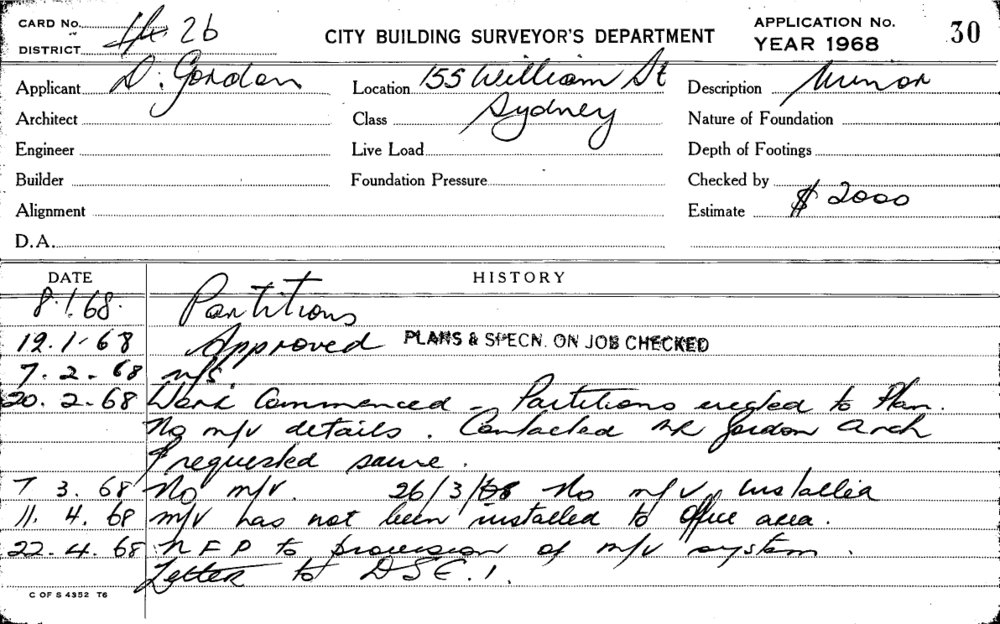 CARD No.
DISTRICT 26
CITY BUILDING SURVEYOR'S DEPARTMENT
APPLICATION No. 30
YEAR 1968
Applicant D. Gordon
Location 155 William St
Description Minor
Architect
Class Sydney
Nature of Foundation
Engineer
Live Load
Depth of Footings
Builder
Foundation Pressure
Checked by
Alignment
Estimate $ 2000
D.A.
DATE HISTORY
8.1.68. Partitions
12.1-68 Approved PLANS & SPECN. ON JOB CHECKED
7.2.68 n/s.
20.2-68 Work Commenced - Partitions erected to Plan.
No m/v details. Contacted Mr Gordon Arch
& requested same.
7 3. 68 No m/v. 26/3/68 No m/v installed
11. 4. 68 m/v has not been installed to office area.
22.4.68 N F P to provision of m/v system.
Letter to DSC.1.
C OF S 4352 T6